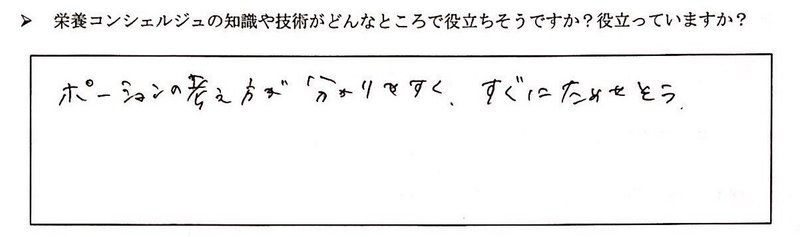 ➤ 栄養コンシェルジュの知識や技術がどんなところで役立ちそうですか？役立っていますか？
ポーションの考え方が分かりやすく、すぐにためせそう.